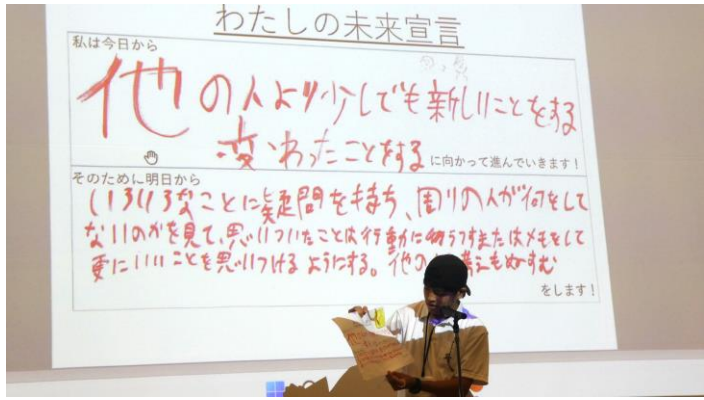 わたしの未来宣言
私は今日から
他の人より少しでも新しいことをする
変わったことをする に向かって進んでいきます！
そのために明日から
いろいろなことに疑問を持ち、周りの人が何をして
ないのかを見て、思いついたことは行動に移うつすまたはメモをして
更にいいことを思いつけるようにする。他の 考えもぬすむ
をします！